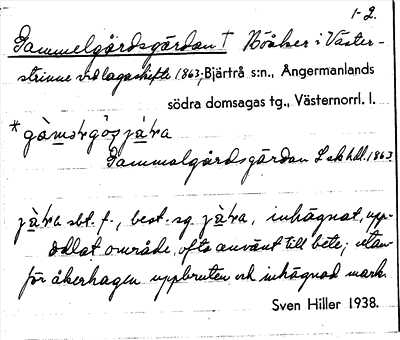 1-2.
Gammelgårdsgärdan † Nöåker i Väster-
strinne vid lagaskifte 1863, Bjärtrå s:n., Ångermanlands
södra domsagas tg., Västernorrl. l.
Gammalgårdsgärdan L sk hdl. 1863
sbt. f., best. sg. inhägnat, upp-
odlat område, ofta använt till bete; utan-
för åkerhagen uppbruten och inhägnad mark.
Sven Hiller 1938.